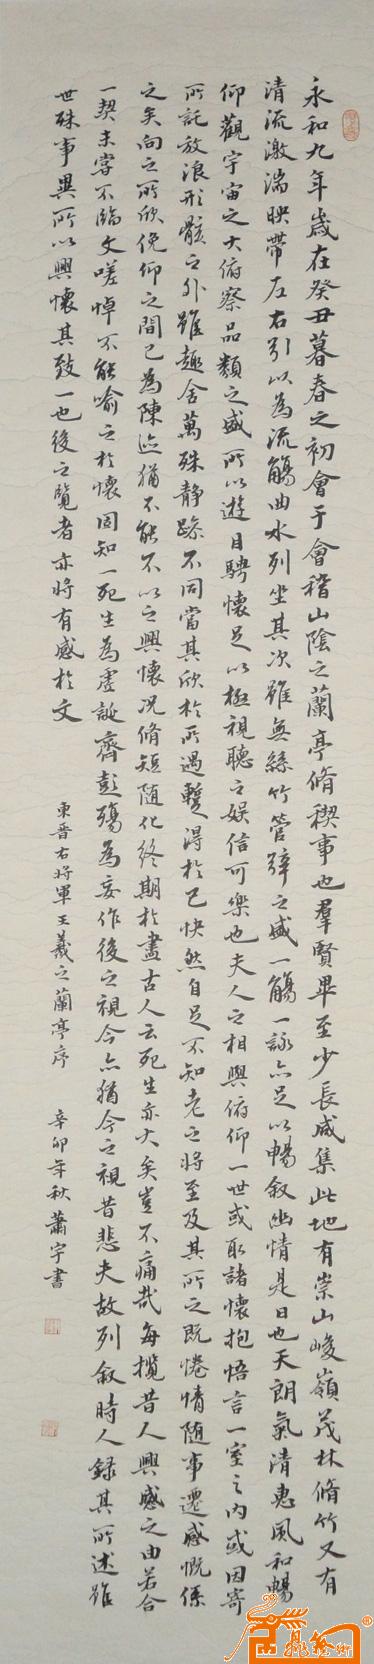 永和九年歲在癸丑暮春之初會于會稽山陰之蘭亭脩稧事也羣賢畢至少長咸集此地有崇山峻嶺茂林脩竹又有
清流激湍映帶左右引以為流觴曲水列坐其次雖無絲竹管弦之盛一觴一詠亦足以暢敘幽情是日也天朗氣清惠風和暢
仰觀宇宙之大俯察品類之盛所以遊目騁懷足以極視聽之娛信可樂也夫人之相與俯仰一世或取諸懷抱悟言一室之內或因寄
所託放浪形骸之外雖趣舍萬殊靜躁不同當其欣於所遇蹔得於己快然自足不知老之將至及其所之既惓情隨事遷感慨係
之矣向之所欣俛仰之間已為陳迹猶不能不以之興懷況脩短隨化終期於盡古人云死生亦大矣豈不痛哉每攬昔人興感之由若合
一契未嘗不臨文嗟悼不能喻之於懷固知一死生為虛誕齊彭殤為妄作後之視今亦猶今之視昔悲夫故列敘時人錄其所述雖
世殊事異所以興懷其致一也後之覽者亦將有感於文
東晉右將軍王羲之蘭亭序
辛卯年秋蕭宇書